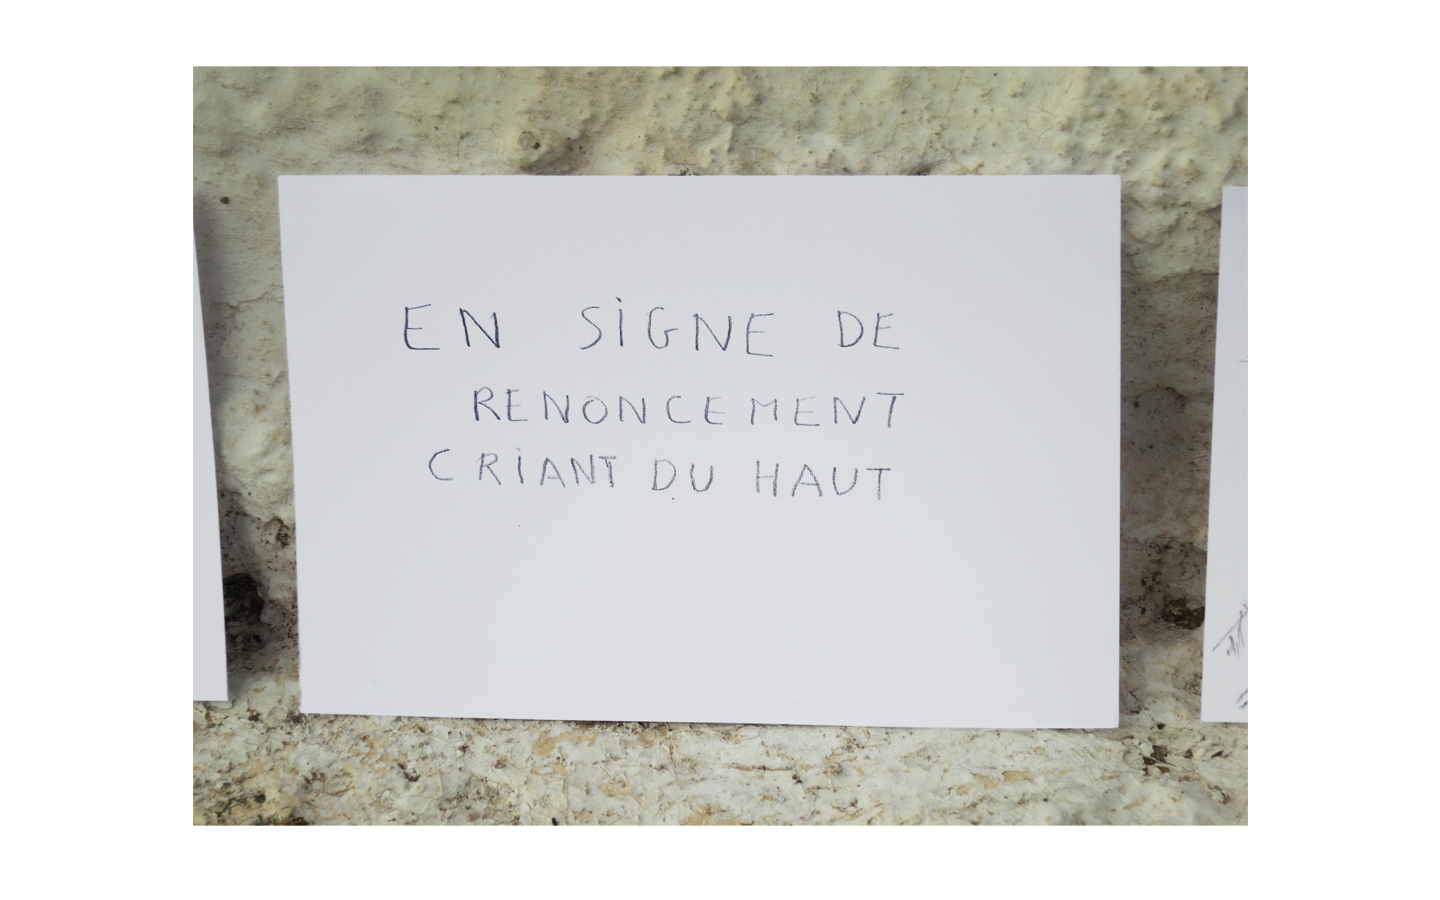 EN SIGNE DE
RENONCEMENT
CRIANT DU HAUT